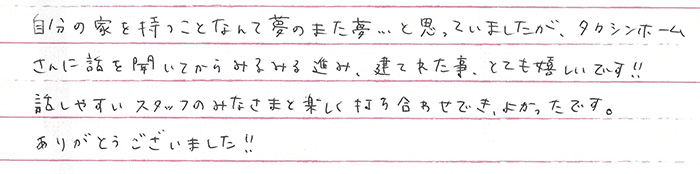 自分の家を持つことなんて夢のまた夢…と思っていましたが、タカシンホーム
さんに話を聞いてからみるみる進み、建てれた事、とても嬉しいです!!
話しやすいスタッフのみなさまと楽しく打ち合わせでき、よかったです。
ありがとうございました!!